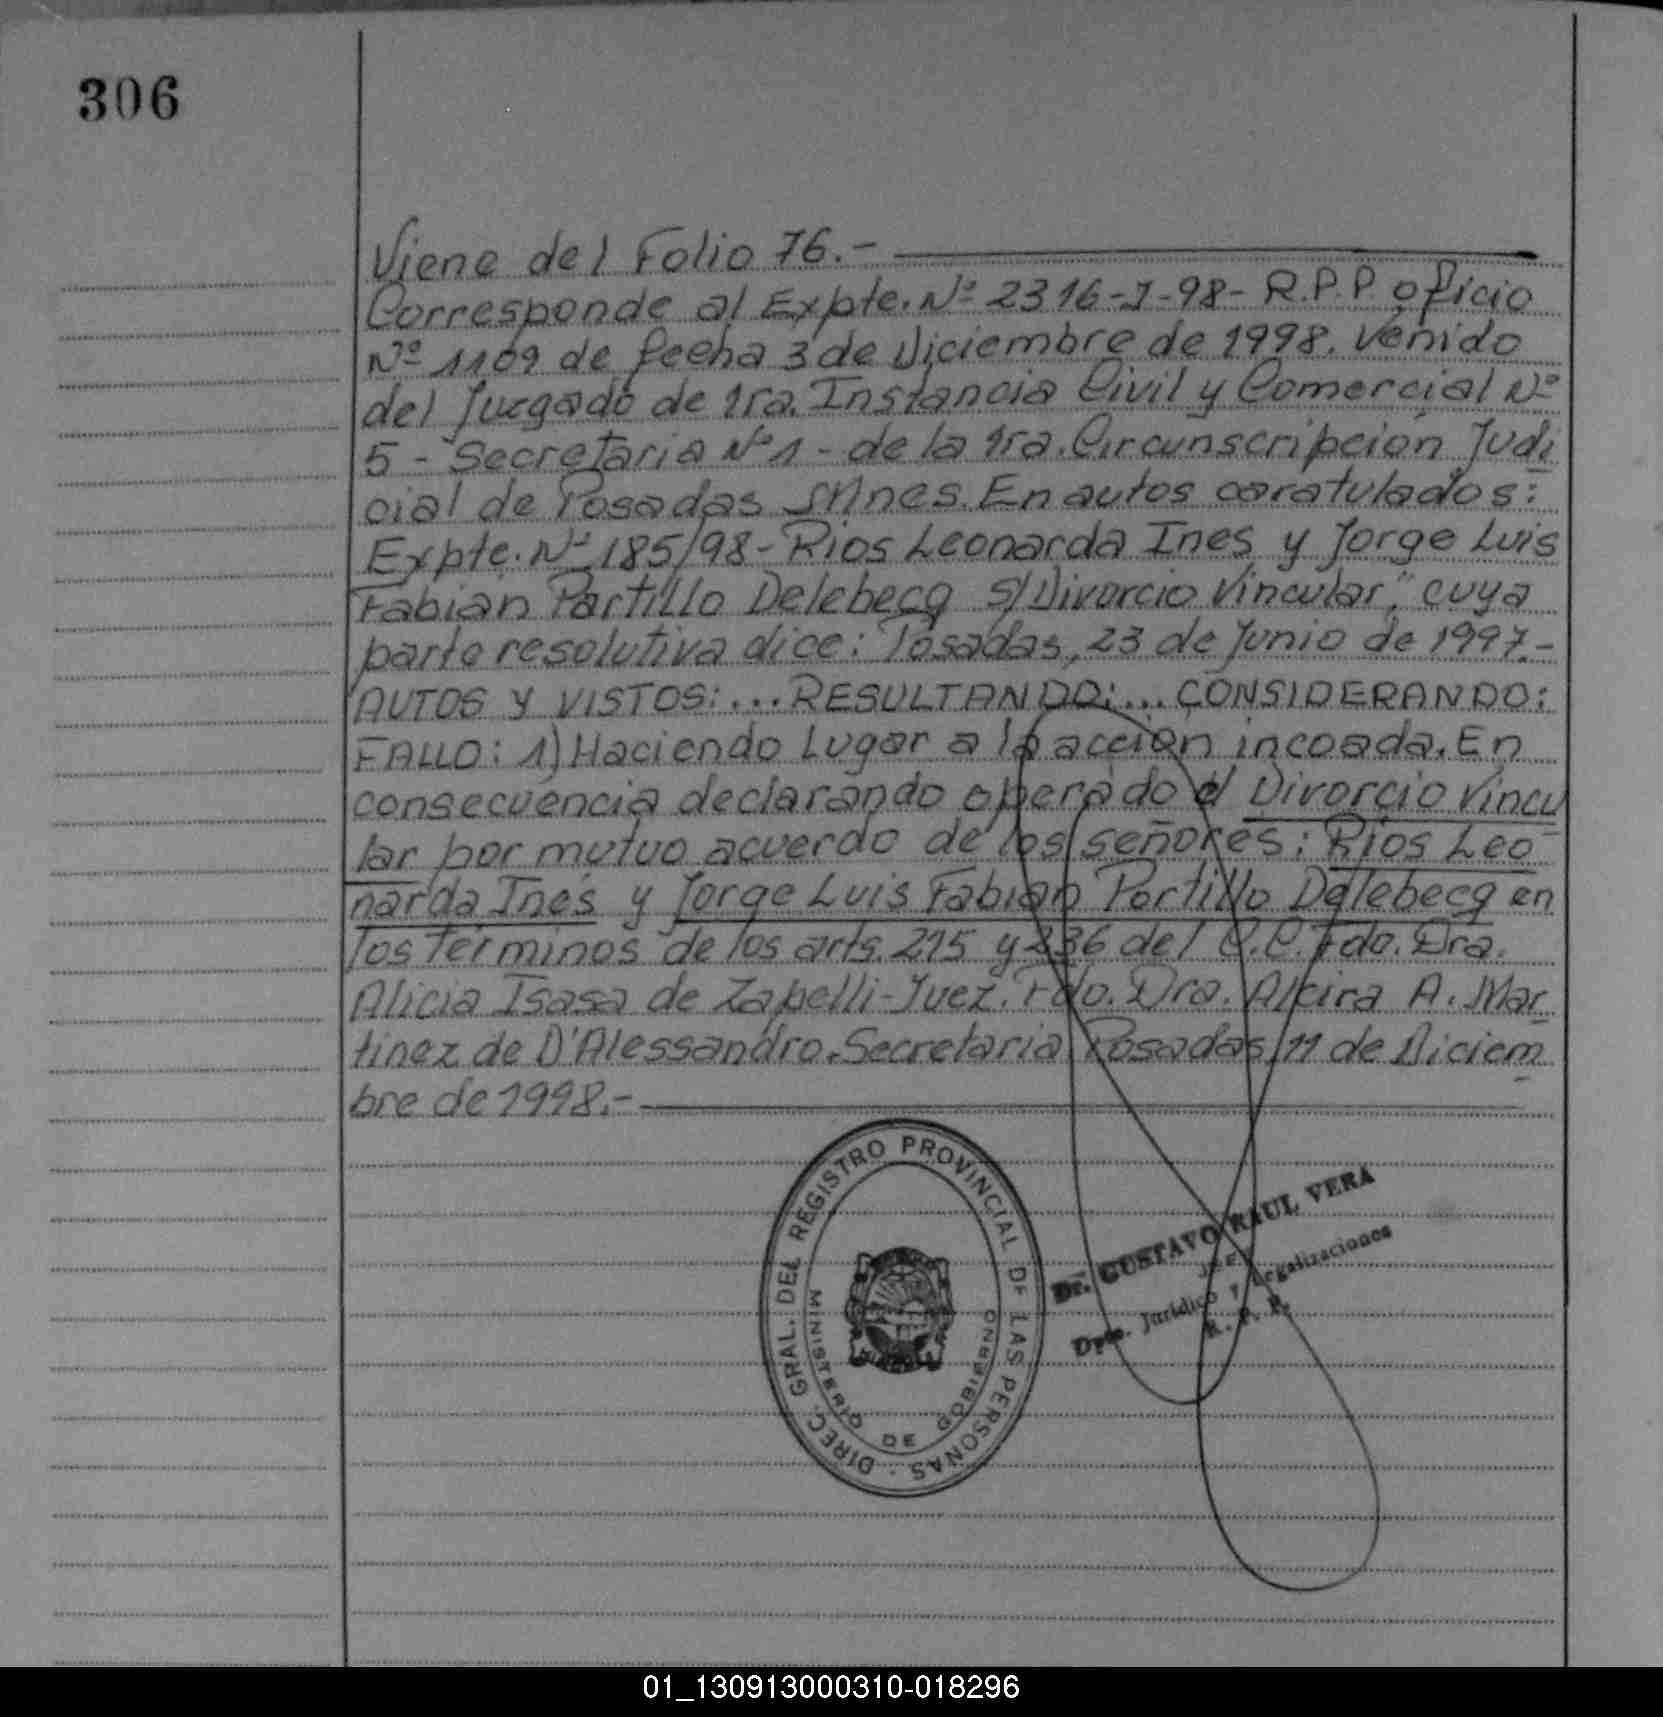 306
Viene del Folio 76.-
Corresponde al Expte. Nº 2316-J-98- R.P.P. oficio
Nº 1109 de fecha 3 de Diciembre de 1998. Venido
del Juzgado de 1ra. Instancia Civil y Comercial Nº
5 - Secretaria Nº 1 - de la 1ra. Circunscripción Judi
cial de Posadas Mnes. En autos caratulados:
Expte. Nº 185/98- Rios Leonarda Ines y Jorge Luis
Fabian Portillo Delebecq S/Divorcio Vincular," cuya
parte resolutiva dice: Posadas, 23 de Junio de 1997.-
AUTOS Y VISTOS:...RESULTANDO:...CONSIDERANDO:
FALLO: 1) Haciendo Lugar a la acción incoada. En
consecuencia declarando operado el Divorcio Vincu
lar por mutuo acuerdo de los señores: Rios Leo
narda Ines y Jorge Luis Fabian Portillo Delebecq en
los términos de los arts. 215 y 236 del C.C. Fdo. Dra.
Alicia Isasa de Zapelli-Juez. Fdo. Dra. Alcira A. Mar
tinez de D'Alessandro. Secretaria Posadas, 11 de Diciem
bre de 1998.-
DIREC. GRAL. DEL REGISTRO PROVINCIAL DE LAS PERSONAS
MINISTERIO DE GOBIERNO
Dr. GUSTAVO RAUL VERA
JEFE
Dpto. Jurídico y Legalizaciones
R. P. P.
01_130913000310-018296